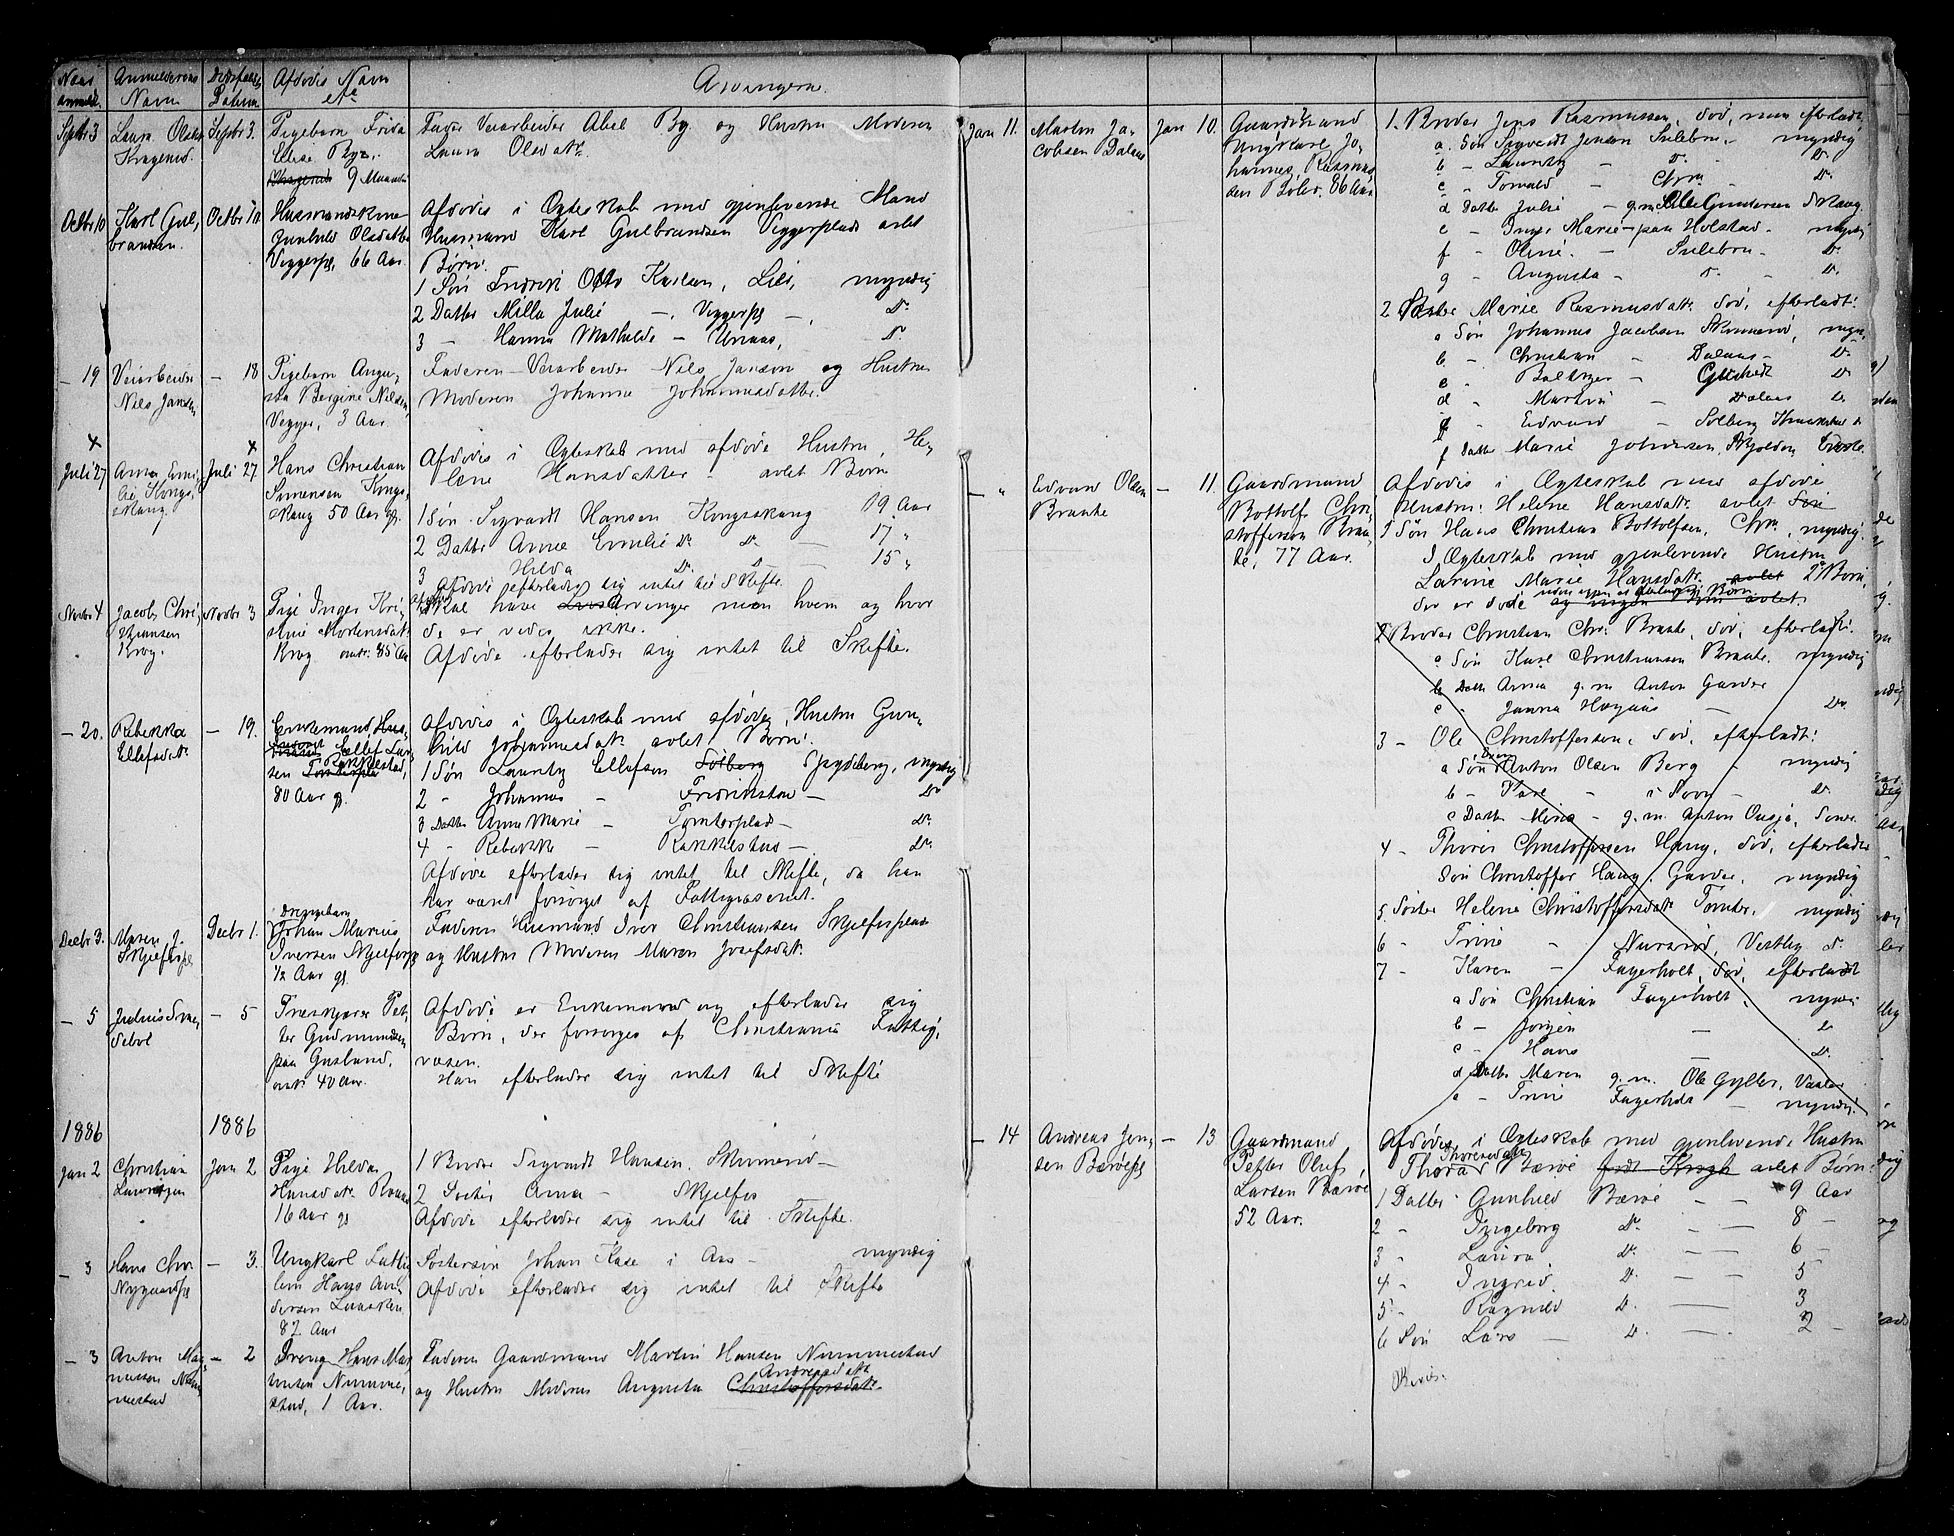 Naar anmeldt.
Anmelderens Navn
Dødsfaldets Datum
Afdødes Navn etc
Arvingerne.
Septbr 3
Laura Olsdtr
Kragerud.
Septbr 3.
Pigebarn Frida
Elise By,
Kragerud 9 Maaneder
Fader Veiarbeider Abel By. og Hustru Moderen
Laura Olsdatr.
Octbr 10
Karl Gul,
brandsen.
Octbr 10.
Husmandskone
Gunhild Olsdatter
Veggerpl, 66 Aar.
Afdødes i Ægteskab med gjenlevende Mand
Husmand Karl Gulbrandsen Veggerplads avlet
Børn:
1 Søn Fredrik Otto Karlsen, Lier, myndig
2 Datter Milla Julie — . Veggerpl — , Do
3 — Hanna Mathilde — Unaas, Do
— 19
Veiarbeider
Nils Jansen
— 18
Pigebarn Augu-
sta Bergine Nilsen,
Vegger, 3 Aar.
Faderen Veiarbeider Nils Jansen og Hustru
Moderen Johanne Johannesdatter.
Juli 27
Anna Emi,
lie Kongs,
skaug.
Juli 27
Hans Christian
Simensen Kongs,
skaug 50 Aar gl.
Afdødes i Ægteskab med afdøde Hustru, He-
lene Hansdatter avlet Børn
1 Søn Sigvardt Hansen Kongsskaug 19 Aar
2 Datter Anna Emilie Do Do — 17 "
3 Hilda Do Do — 15 "
Afdøde efterlader sig intet til Skifte.
Novbr 4
Jacob Chri,
stiansen
Krog.
Novbr 3
Pige Inger Kri-
stine Mortensdatr
Krog omtr. 85 Aar
Afdøde skal have Livsarvinger men hvem og hvor
de er vides ikke.
Afdøde efterlader sig intet til Skifte.
— 20.
Rebekka
Ellefsdtr
— 19.
Enkemand Hus-
mand Ellef Lar
sen Tomterpla Rakkelstad,
80 Aar gl.
Afdødes i Ægteskab med afdøde, Hustru Gun-
hild Johannesdatr avlet Børn:
1 Søn Lauritz Ellefsen Solberg Spydeberg, myndig
2 - Johannes - Fredrikstad — Do
3 Datter Anne Marie - Tomterplads — Do
4 - Rebekka - Rakkelstad — . Do
Afdøde efterlader sig intet til Skifte, da han
har været forsørget af Fattigvæsenet.
Decbr 3.
Maren J.
Skjelfospl
Decbr 1.
Drengebarn
Johan Marius
Iversen Skjelfospl
1/2 Aar gl
Faderen Husmand Iver Christiansen Skjelfosplads
og Hustru Moderen Maren Josefsdatr.
— 5
Julius Sme,
debøl
— 5
Træskjærer Pet,
ter Gudmundsen
paa Gusland,
omtr. 40 Aar.
Afdøde er Enkemand og efterlader sig
Børn, der forsørges af Christiania Fattig,
væsen.
Han efterlader sig intet til Skifte
1886
1886
Jan 2
Christian
Lauritzen
Jan 2
Pige Hilda
Hansdatr
16 Aar gl
1 Broder Sigvardt Hansen. Skimerød —
2 Søster Anna — Skjelfos
Afdøde efterlader sig intet til Skifte.
— 3
Hans Chr.
Nygaardspl
— 3.
Ungkarl Fattig
lem Hans An-
dersen
82 Aar
Søstersøn Johan Kase i Aas — myndig
Afdøde efterlader sig intet til Skifte
— 3
Anton Mag,
nussen Num
mestad
— 2
Dreng Hans Mar
tinsen Numme,
stad, 1 Aar.
Faderen Gaardmand Martin Hansen Nummestad
og Hustru Moderen Augusta Christoffersdatr Andreasdatr
Jan 11.
Martin Ja-
cobsen Dalaas
Jan 10.
Gaardmand
Ungkarl Jo-
hannes, Rasmus-
sen Bøler. 86 Aar
1. Broder Jens Rasmussen, død, men efterladt:
a. Søn Sigvardt Jensen Sulebru - myndig
b - Lauritz - Do Do
c - Torvald - Chra. - Do
d Datter Julie - g.m. Gundersen Skaug
e - Inger Marie - paa Holstad - myndig
f - Oline - Sulebru - Do
g - Augusta - Do - Do
2 Søster Marie Rasmusdatr død, efterladt:
a Søn Johannes Jacobsen Skimerød, myn.
b - Christian - Dalaas - Do
c - Baltzer - Glistedt Do
d - Martin - Dalaas Do
e - Edvard - Solberg Kraakstad Do
f Datter Marie Johansen, Skjolden
— "
Edvard Olsen
Braate
— 11.
Gaardmand
Bottolf Chri
stoffersen Braa-
te, 77 Aar.
Afdødes i Ægteskab med afdøde
Hustru: Helene Hansdatr avlet Søn
1 Søn Hans Christian Bottolfsen, Chra, myndig.
I Ægteskab med gjenlevende Hustru
Larine Marie Hansdatr. avlet 2 Børn,
der er døde
2 Broder Christian Chr. Braate, død, efterladt:
a Søn Karl Christiansen Braate. myndig
b Datter Anna g.m Anton Garder
c - Janna Hagaas — Do
3 - Ole Christoffersen, død, efterladt:
a Søn Anton Olsen Berg - myndig
b - Karl - i Søon - Do
c Datter Mina - g.m. Anton Ousjø, Soner
4 - Thorer Christoffersen Haug. død, efterladt
Søn Christoffer Haug. Garder. myndig
5. Søster Helene Christoffersdatr Tomter. myndig
6 - Trine - Nursrød, Vestby do
7 - Karen - Fagerholt, død, efterladt
a Søn Christian Fagerholt, myndig
b - Jørgen — Do
c - Hans — Do
d Datter Maren g.m. Ole Gyller, Vaaler
e - Trine Fagerholt — myndig.
— 14
Andreas Jen,
sen Bærøepl
— 13
Gaardmand
Petter Oluf,
Larsen Bærøe
52 Aar.
Afdødes i Ægteskab med gjenlevende Hustru
Thora Thoresdatr Bærøe født Krogh avlet Børn:
1 Datter Gunhild Bærøe — — 9 Aar
2 - Ingeborg Do — — 8 —
3 - Laura Do — — 6 —
4 - Ingrid Do — — 5
5 - Ragnild Do — — 3
6 Søn Lars — Do — 2 —